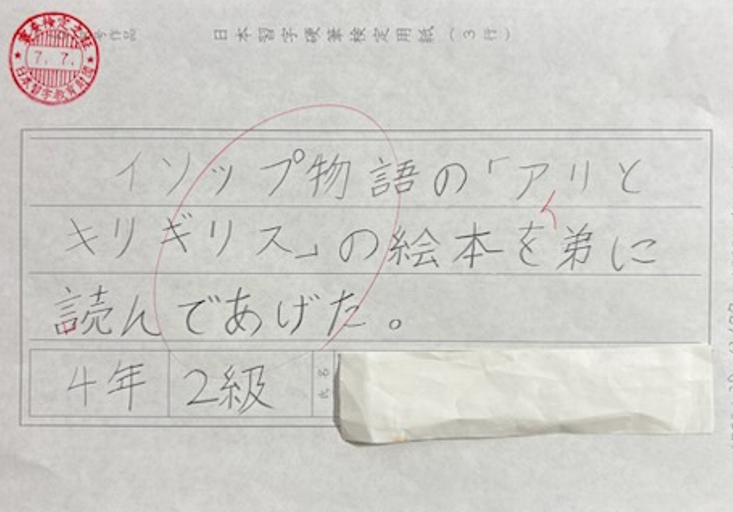 日本習字硬筆検定用紙(3行)
7.7.
日本習字教育財団
イソップ物語の「アリと
キリギリス」の絵本を弟に
読んであげた。
4年 2級 氏名